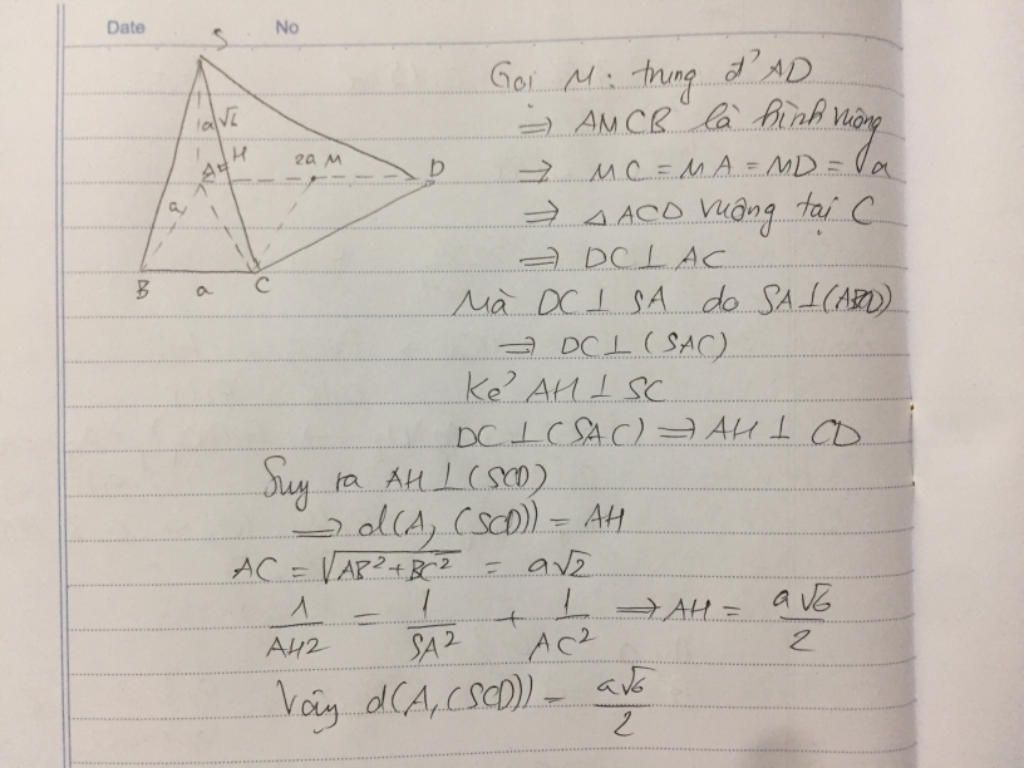 Date No
S
a√6
A H 2a M D
a
B a C
Gọi M: trung đ' AD
⇒ AMCB là hình vuông
⇒ MC = MA = MD = a
⇒ △ACD vuông tại C
⇒ DC ⊥ AC
Mà DC ⊥ SA do SA ⊥ (ABCD)
⇒ DC ⊥ (SAC)
Kẻ AH ⊥ SC
DC ⊥ (SAC) ⇒ AH ⊥ CD
Suy ra AH ⊥ (SCD)
⇒ d(A, (SCD)) = AH
AC = √(AB² + BC²) = a√2
1/AH2 = 1/SA² + 1/AC² ⇒ AH = a√6/2
Vậy d(A, (SCD)) = a√6/2